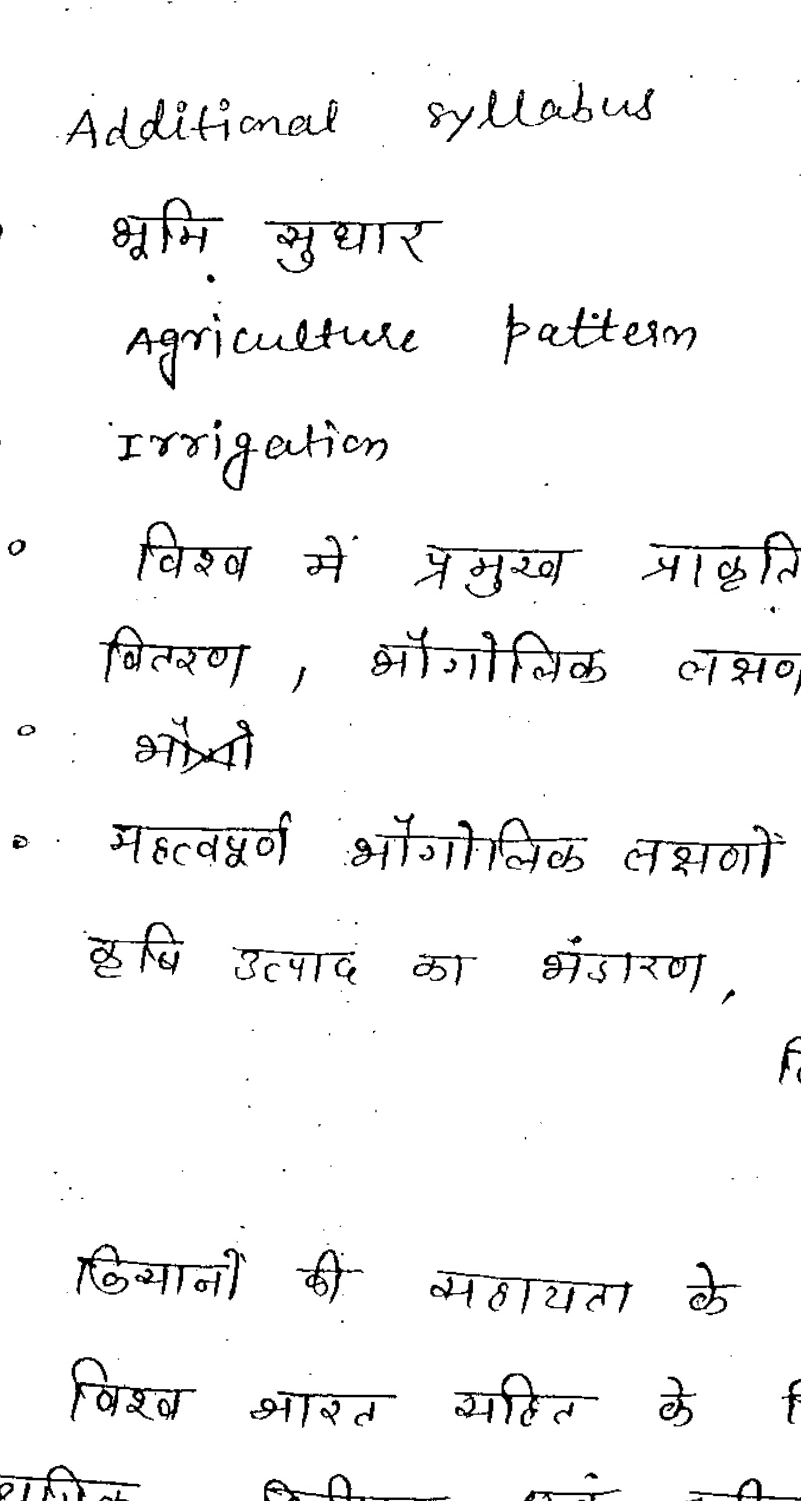 Additional syllabus
भूमि सुधार
Agriculture pattern
Irrigation
विश्व में प्रमुख प्राकृति
वितरण, भौगोलिक लक्षण
महत्वपूर्ण भौगोलिक लक्षणों
कृषि उत्पाद का भंडारण,
किसानों की सहायता के
विश्व भारत सहित के